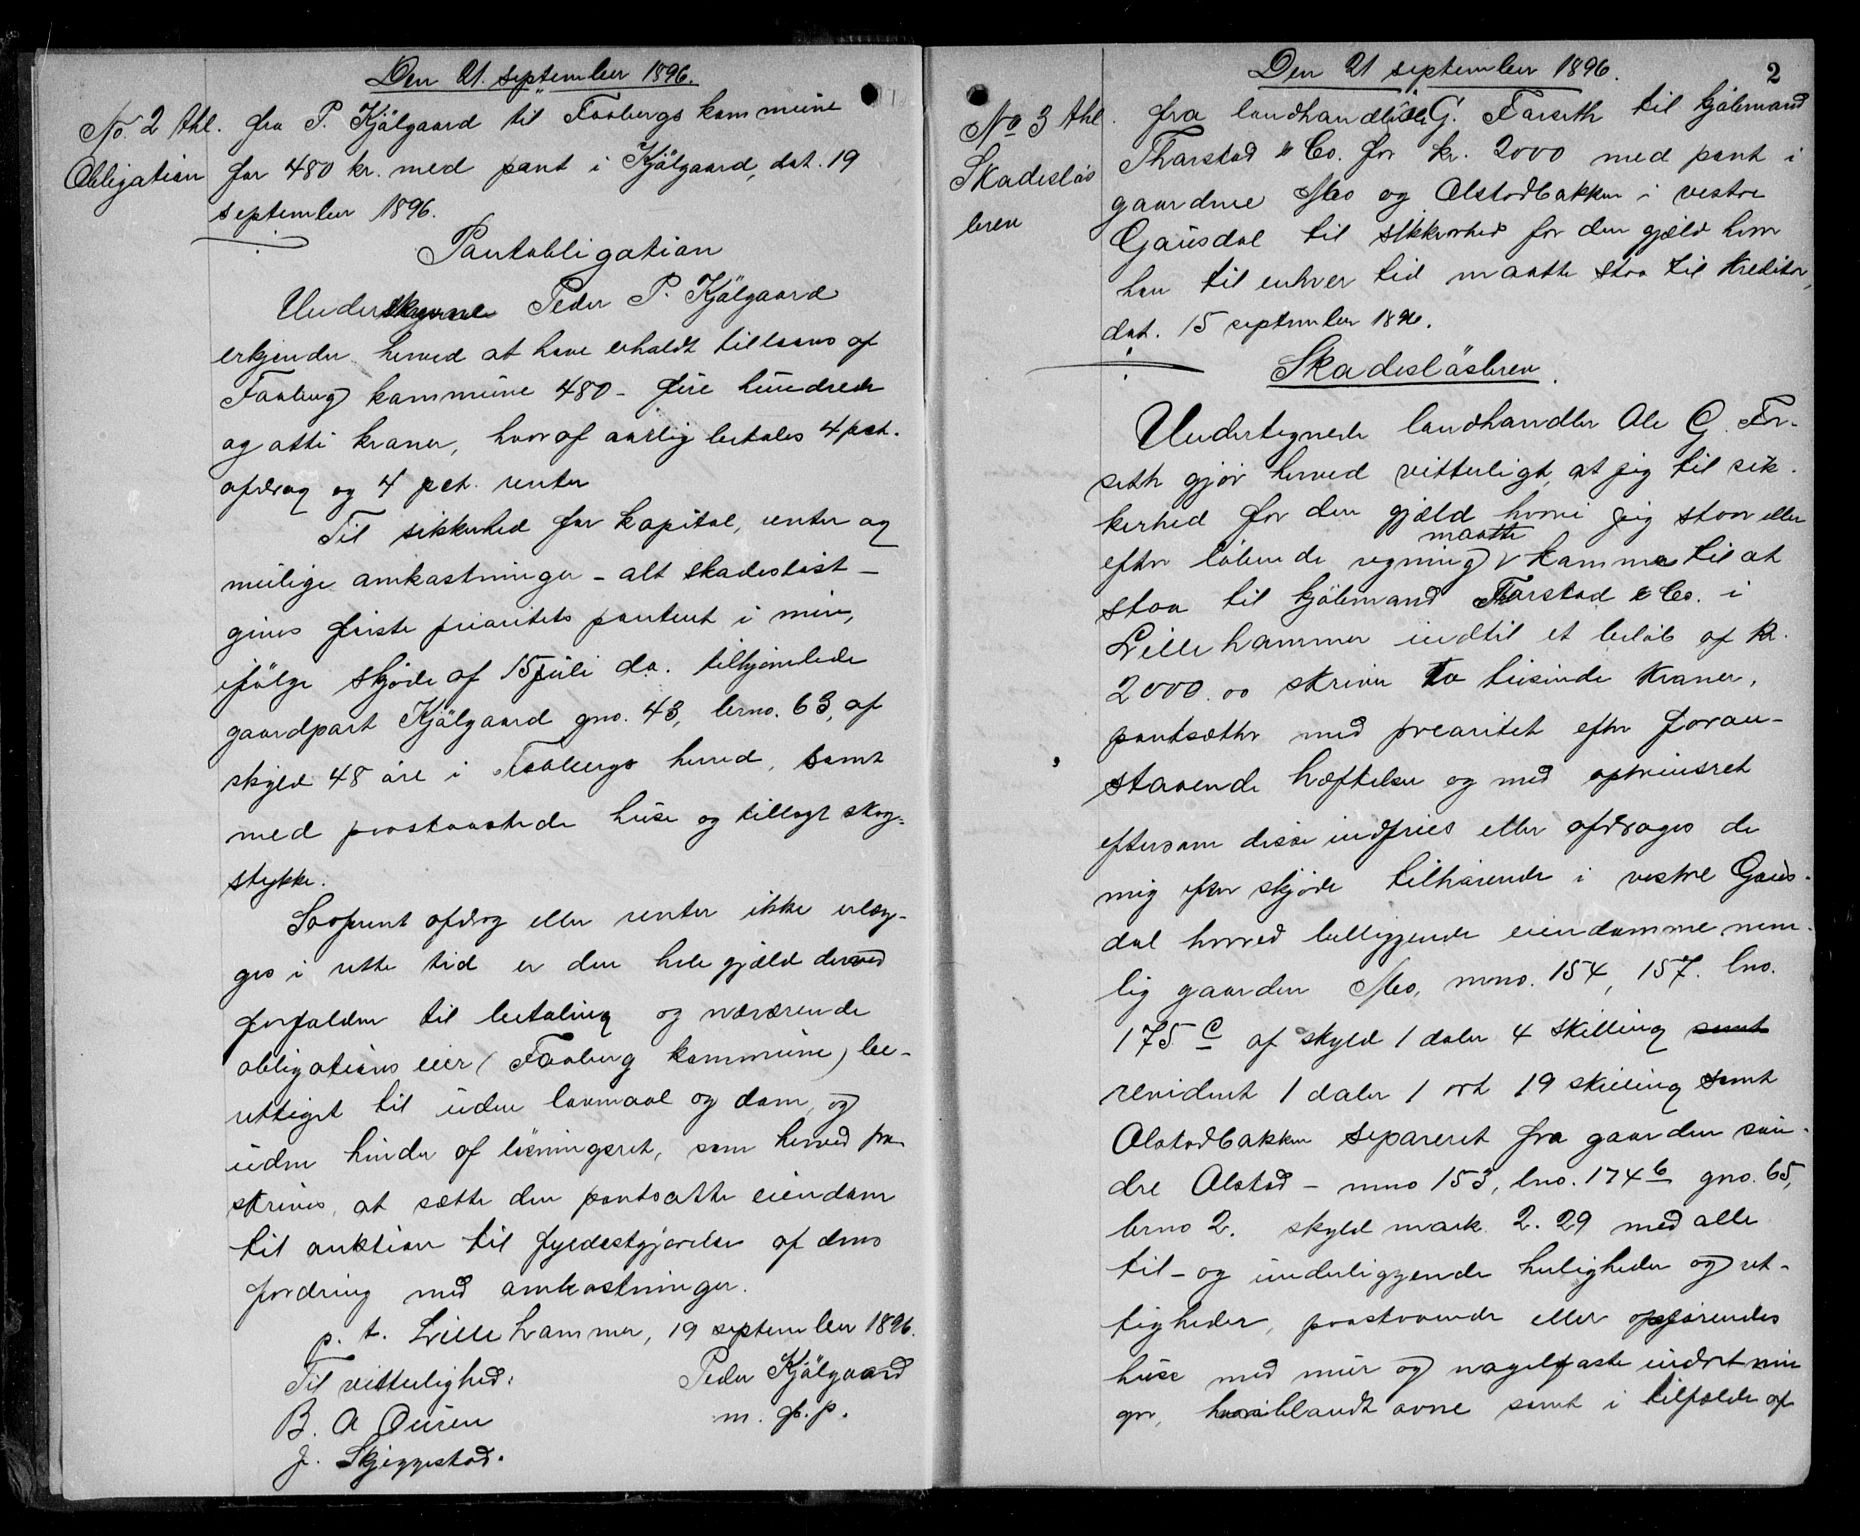 Den 21. september 1896.
No. 2 thl. fra P. Kjölgaard til Faabergs kommune
Obligation for 480 kr. med pant i Kjölgaard, dat. 19
september 1896.
Pantobligation
Underskrevne Peder P. Kjölgaard
erkjender herved at have erholdt tillaans af
Faaberg kommune 480 - fire hundrede
og otti kroner, hvoraf aarlig betales 4 pct.
afdrag og 4 pct. renter
Til sikkerhed for kapital, renter og
mulige omkostninger - alt skadeslöst -
gives förste prioritets panteret i min,
ifölge skjöde af 15 juli d.a. tilhjemlede
gaardpart Kjölgaard gno. 43, brno. 63, af
skyld 48 öre i Faabergs herred, samt
med paastaaende huse og tillagt skog-
stykke.
Saafremt afdrag eller renter ikke erlæg-
ges i rette tid er den hele gjæld derved
forfalden til betaling og nærværende
obligations eier (Faaberg kommune) be-
rettiget til uden lovmaal og dom, og
uden hinder af lösningsret, som herved fra
skrives, at sætte den pantsatte eiendom
til auktion til fyldestgjörelse af dens
fordring med omkostninger.
p. t. Lillehammer, 19 september 1896.
Til vitterlighed: Peder Kjölgaard
B. A Ouren m. f. p.
J. Skjeggestad.
Den 21 september 1896. 2
No 3 thl. fra landhandler Ole G. Forseth til kjöbmand
Skadeslös Thorstad & Co. for kr. 2000 med pant i
brev gaardene Mo og Olstadbakken i vestre
Gausdal til sikkerhed for den gjæld hvor
han til enhver tid maatte staa til kreditor,
dat. 15 september 1896.
Skadeslösbrev.
Undertegnede landhandler Ole G. For-
seth gjör herved vitterligt, at jeg til sik-
kerhed for den gjæld hvori jeg staar eller
efter löbende regning maatte komme til at
staa til kjöbmand Thorstad & Co. i
Lillehammer indtil et belöb af kr.
2000.00 skriver to tusinde kroner,
pantsætter med prioritet efter foran-
staaende hæftelser og med oprinsret
eftersom disse indfries eller afdrages de
mig efter skjöde tilhörende i vestre Gaus-
dal herred beliggende eiendomme nem-
lig gaarden Mo, mno. 154, 157. lno.
175 c af skyld 1 daler 4 skilling samt
revideret 1 daler 1 ort 19 skilling samt
Olstadbakken separeret fra gaarden sön-
dre Olstad - mno 153, lno. 174 b gno. 65,
brno 2. skyld mark 2.29 med alle
til- og underliggende herligheder og ret-
tigheder, paastaaende eller opförendes
huse med mur og nagelfaste indretnin
ger, hvoriblandt ovne samt i tilfælde af